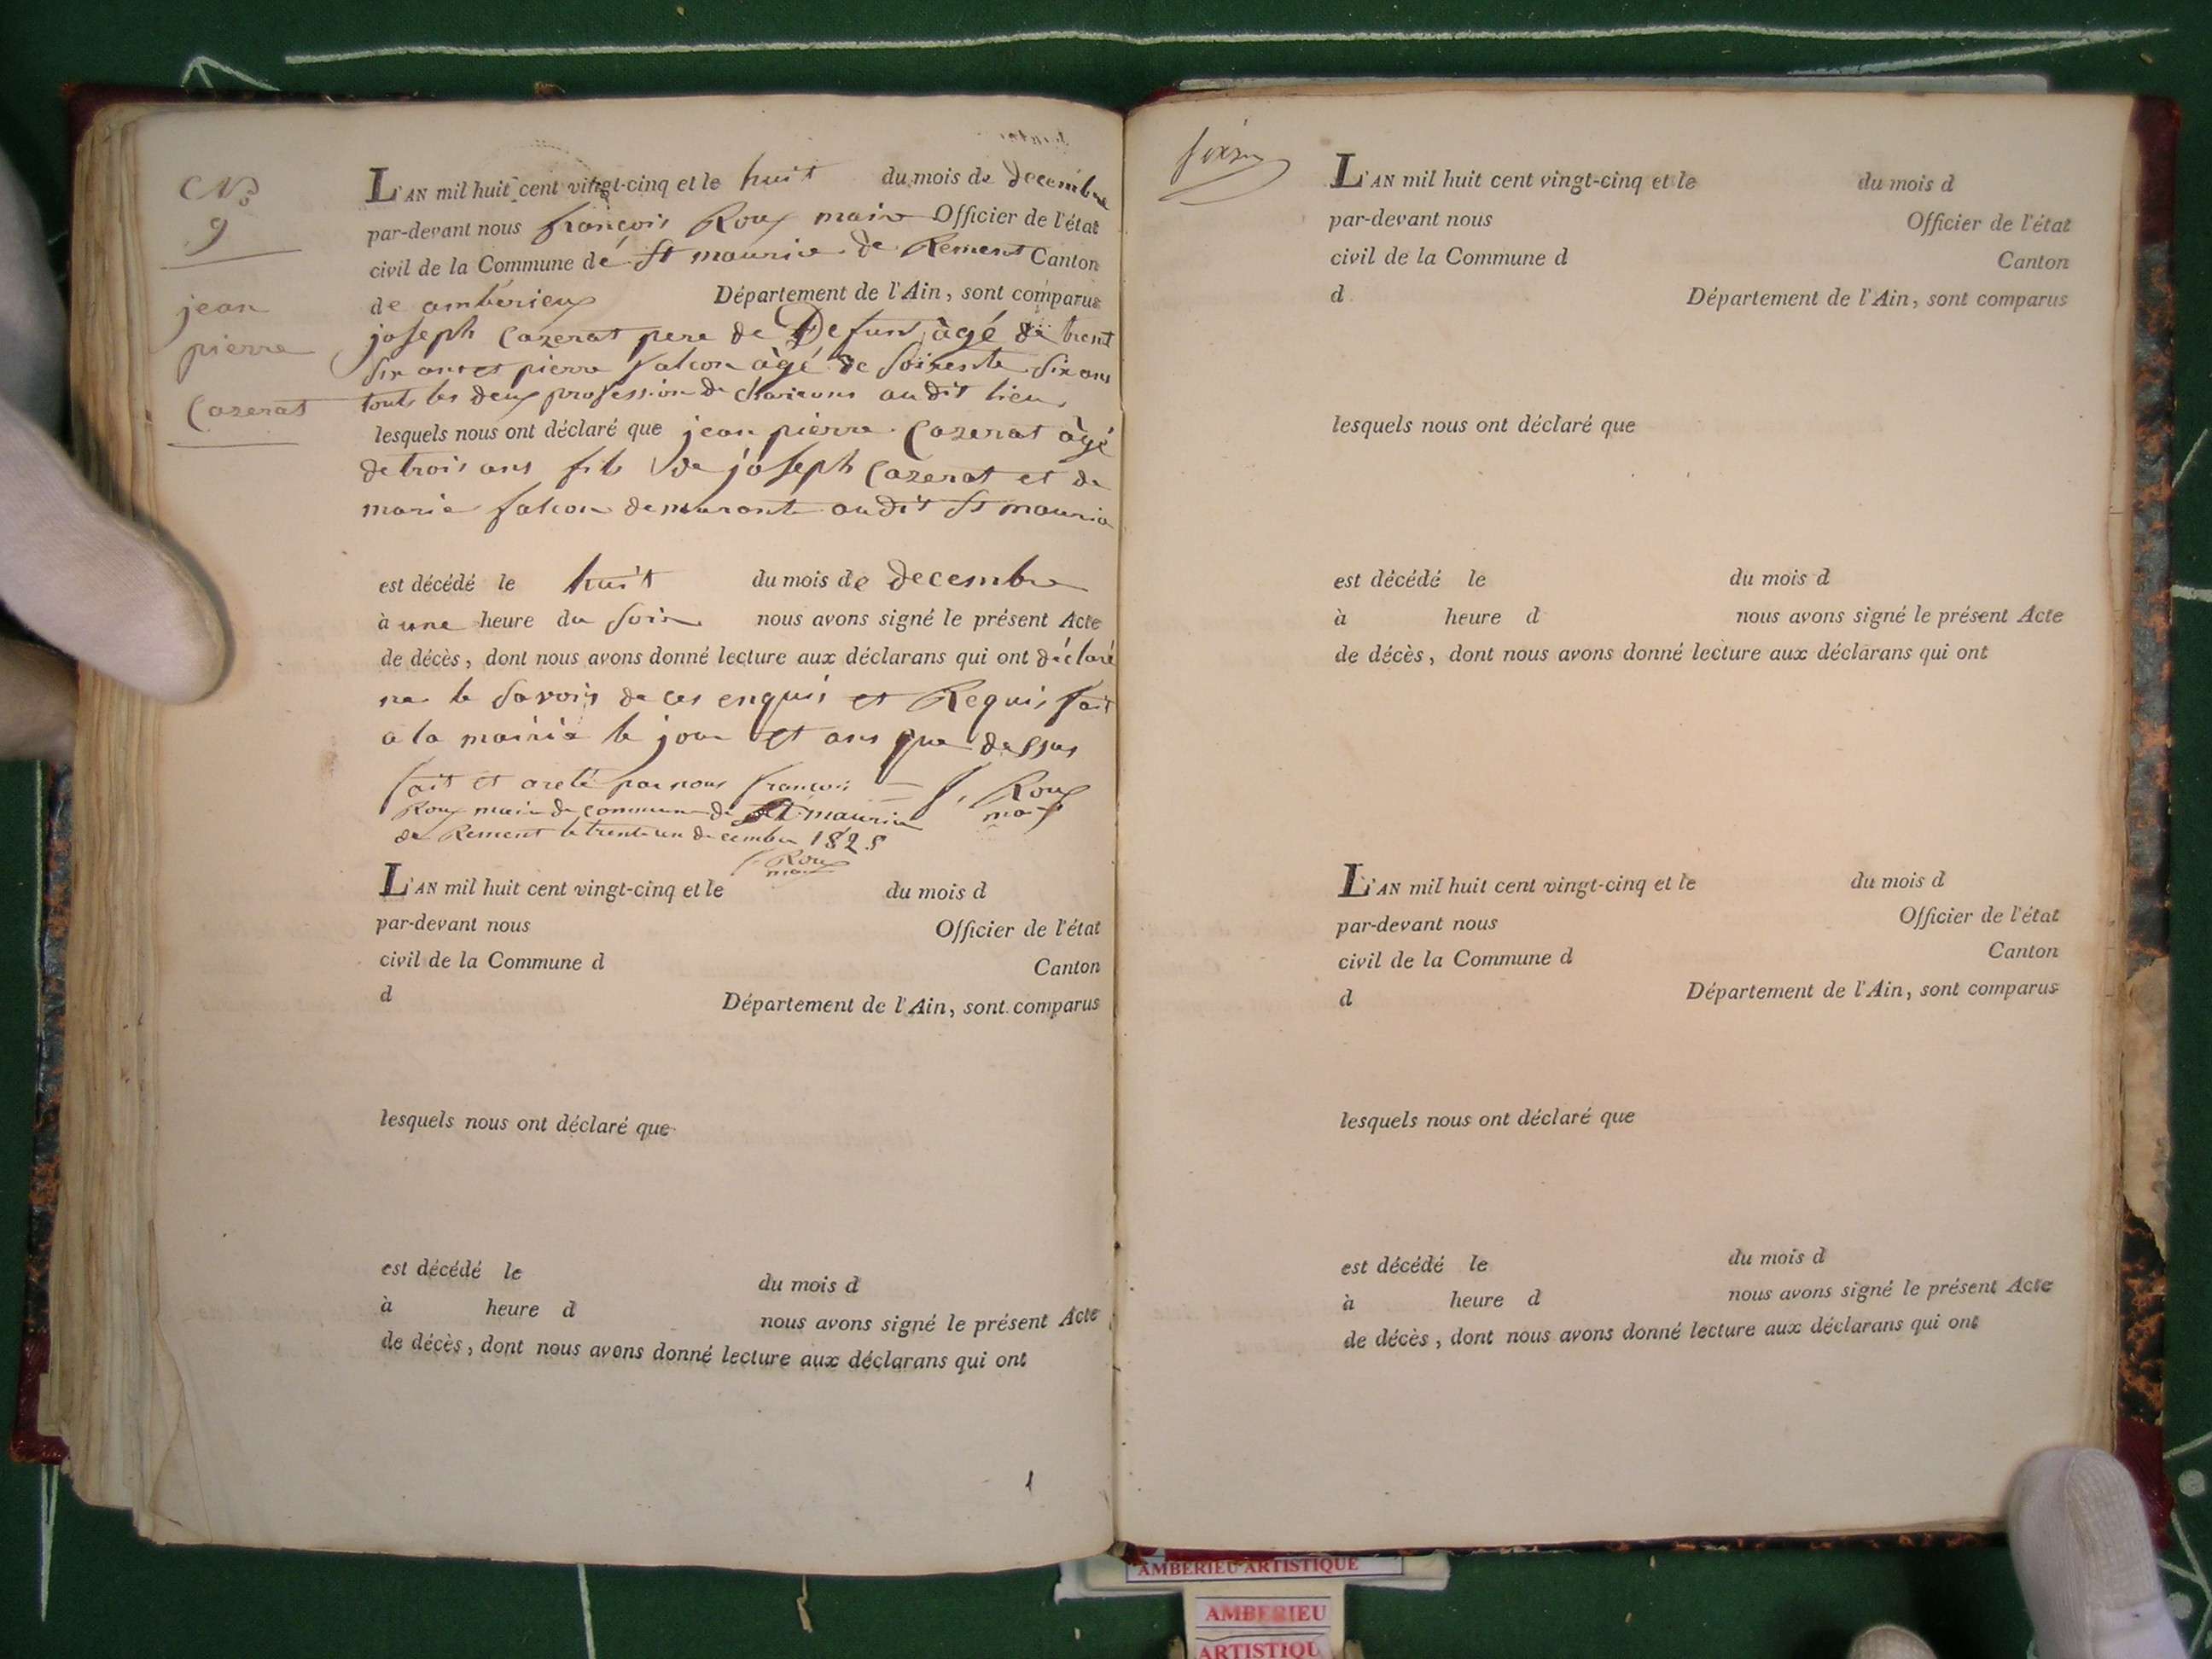 N°
9
jean
pierre
Cazerat
L'AN mil huit cent vingt-cinq et le huit du mois de decembre
par-devant nous françois Roux maire Officier de l'état
civil de la Commune de St maurice de Rement Canton
de amberieux Département de l'Ain, sont comparus
joseph Cazerat pere de Defunt âgé de trent
Six ans et pierre falcon âgé de Soixente Six ans
touts les deux profession de charons au dit lieu
lesquels nous ont déclaré que jean pierre Cazerat âgé
de trois ans fils de joseph Cazerat et de
marie falcon demeurante au dit St maurice
est décédé le huit du mois de decembre
à une heure du Soir nous avons signé le présent Acte
de décès, dont nous avons donné lecture aux déclarans qui ont déclaré
ne le Savoir de ces enquis et Requis fait
a la mairie le jour et ans que dessus
fait et areté par nous françois
Roux maire de commune de St maurice
de Rement le trente un decembre 1825
f. Roux
maire
f. Roux
maire
L'AN mil huit cent vingt-cinq et le du mois d
par-devant nous Officier de l'état
civil de la Commune d Canton
d Département de l'Ain, sont comparus
lesquels nous ont déclaré que
est décédé le du mois d
à heure d nous avons signé le présent Acte
de décès, dont nous avons donné lecture aux déclarans qui ont
1
L'AN mil huit cent vingt-cinq et le du mois d
par-devant nous Officier de l'état
civil de la Commune d Canton
d Département de l'Ain, sont comparus
lesquels nous ont déclaré que
est décédé le du mois d
à heure d nous avons signé le présent Acte
de décès, dont nous avons donné lecture aux déclarans qui ont
L'AN mil huit cent vingt-cinq et le du mois d
par-devant nous Officier de l'état
civil de la Commune d Canton
d Département de l'Ain, sont comparus
lesquels nous ont déclaré que
est décédé le du mois d
à heure d nous avons signé le présent Acte
de décès, dont nous avons donné lecture aux déclarans qui ont
AMBERIEU ARTISTIQUE
AMBERIEU
ARTISTIQU